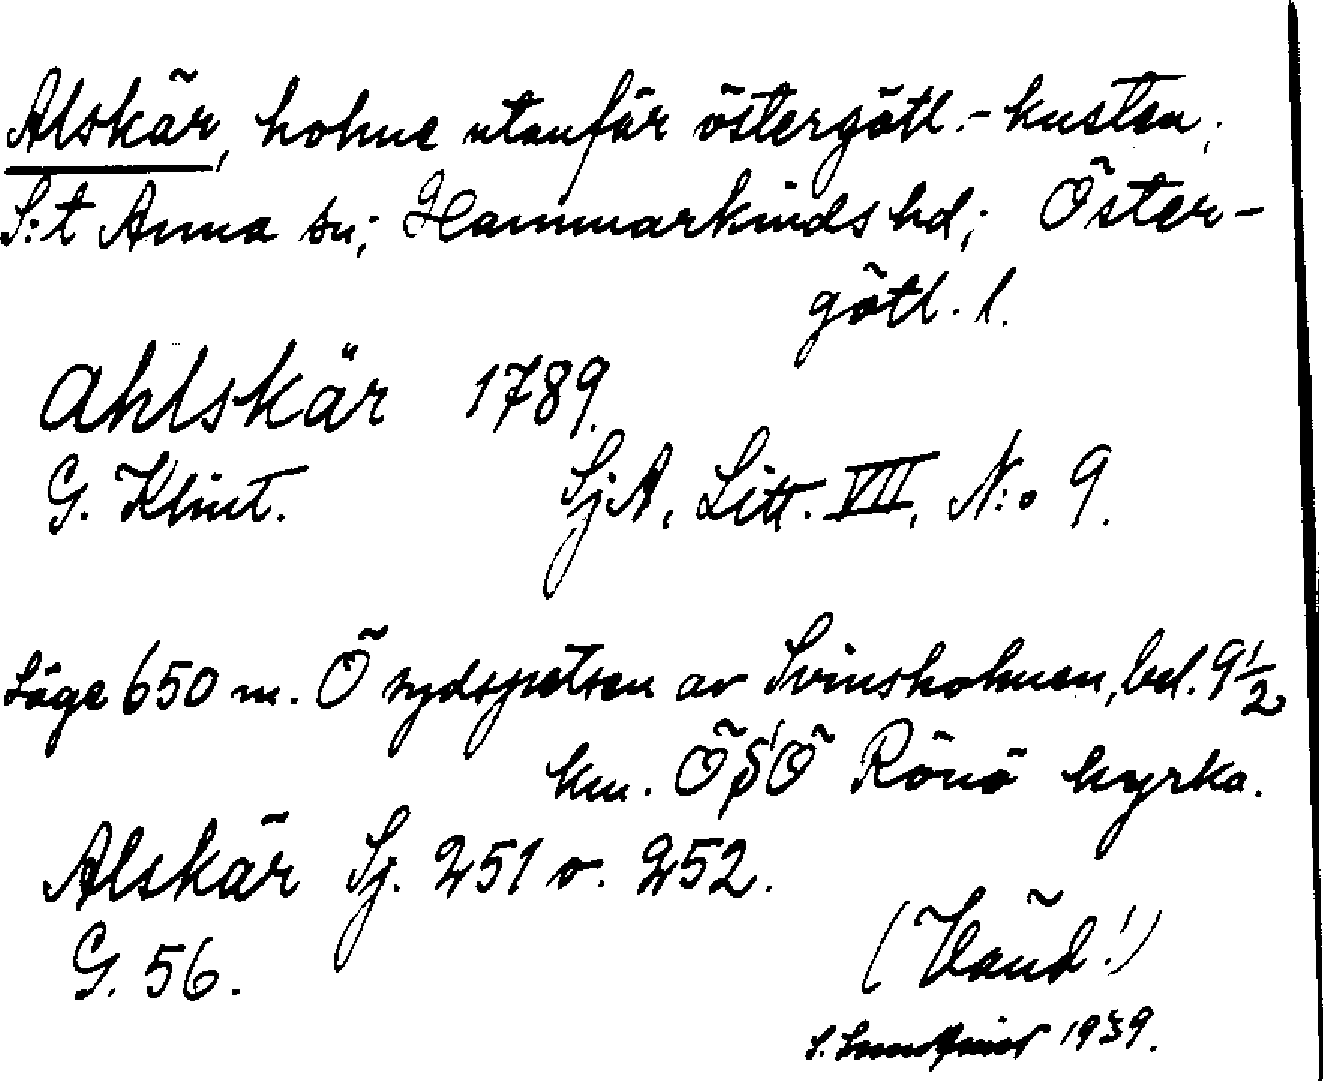 Alskär, holme utanför östergötl.-kusten;
S:t Anna sn; Hammarkinds hd; Öster-
götl. l.
Ahlskär 1789.
G. Klint. SjA, Litt. VII, N:o 9.
Läge 650 m. Ö sydspetsen av Svinsholmen, bel. 9 1/2
km. ÖSÖ Rönö kyrka.
Alskär Sj. 251 o. 252.
G. 56.
(Vänd!)
S. 1939.